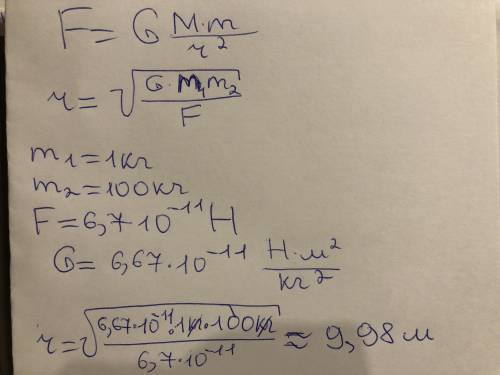 F = G M·m / r²
r = √(G·M₁m₂ / F)
m₁ = 1кг
m₂ = 100кг
F = 6,7·10⁻¹¹ Н
G = 6,67·10⁻¹¹ Н·м² / кг²
r = √(6,67·10⁻¹¹·1кг·100кг / 6,7·10⁻¹¹) ≈ 9,98 м